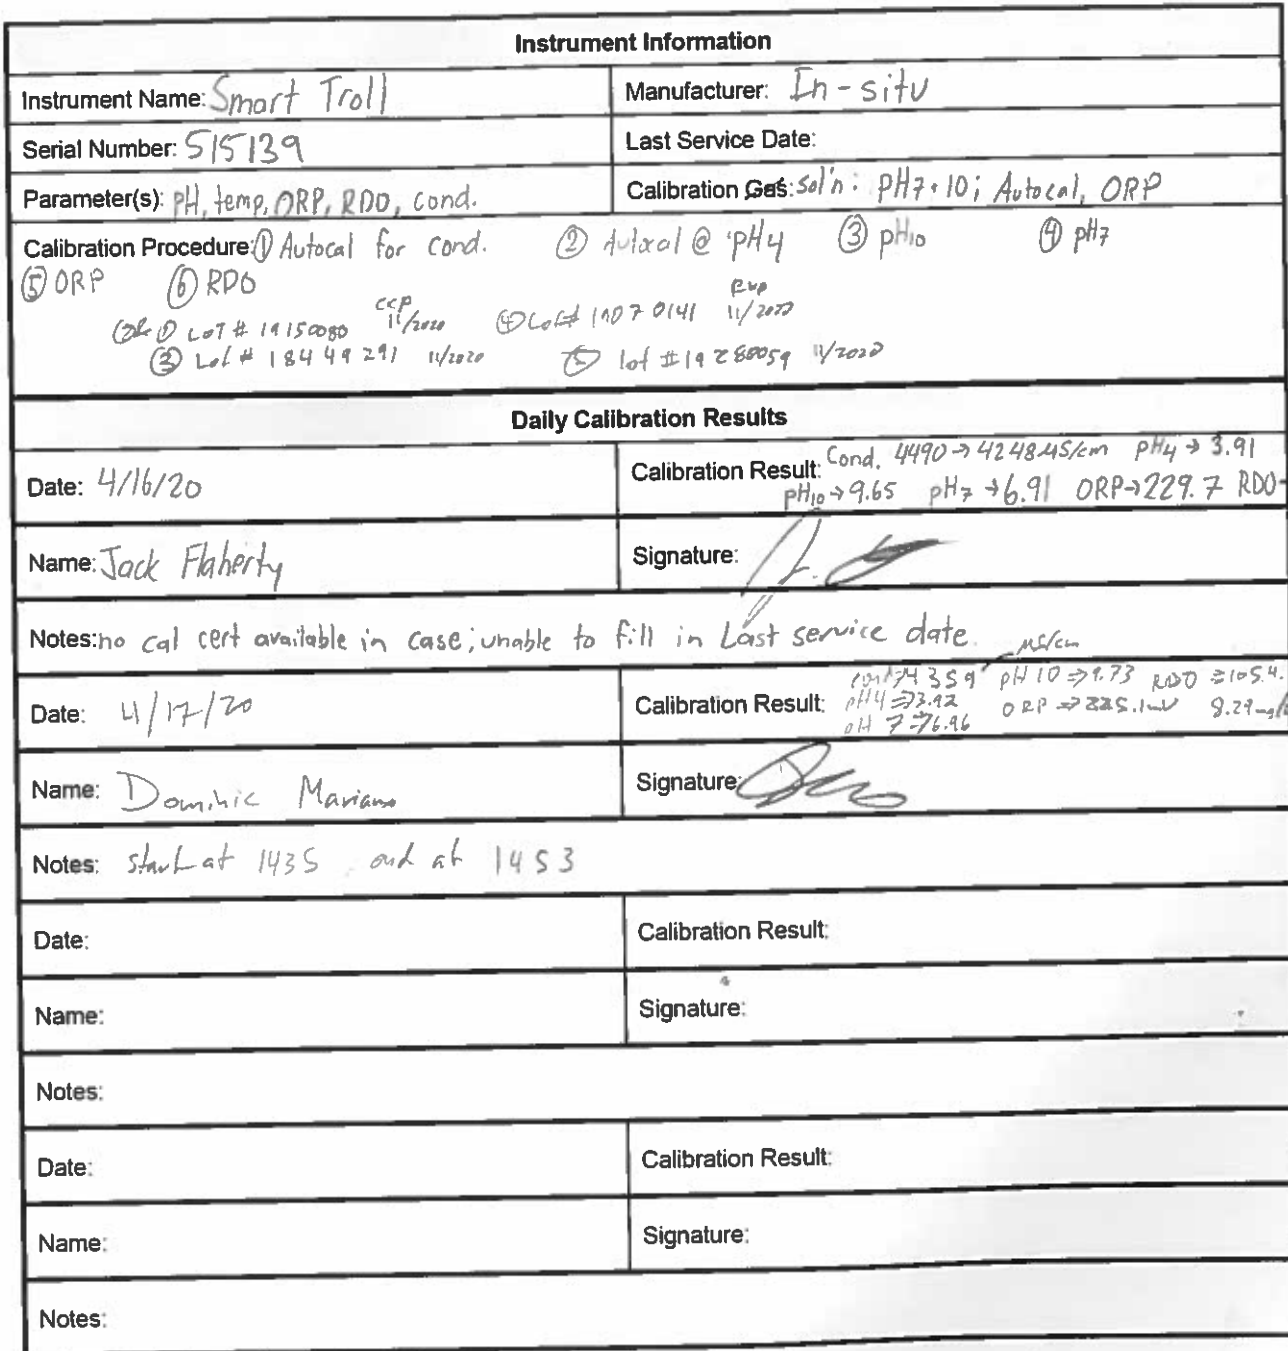 Instrument Information
Instrument Name: Smart Troll
Manufacturer: In-situ
Serial Number: 515139
Last Service Date:
Parameter(s): pH, temp, ORP, RDO, cond.
Calibration Gas: sol'n: pH7+10; Autocal, ORP
Calibration Procedure: ① Autocal for cond. ② Autocal @ pH4 ③ pH10 ④ pH7
⑤ ORP ⑥ RDO
11/2020 11/2020
① LOT # 19150080 ④ Lot# 19070141
③ Lot # 18449291 11/2020 ⑤ lot #19280059 11/2020
Daily Calibration Results
Date: 4/16/20
Calibration Result: Cond. 4490→4248 µS/cm pH4→3.91
pH10→9.65 pH7→6.91 ORP→229.7 RDO-
Name: Jack Flaherty
Signature:
Notes: no cal cert available in case; unable to fill in Last service date.
Date: 4/17/20
µS/cm
Calibration Result: cond⇒4359 pH 10⇒9.73 RDO ⇒105.4.
pH4⇒3.92 ORP⇒225.1mV 8.29 mg/
pH 7⇒6.96
Name: Dominic Mariano
Signature:
Notes: start at 1435 end at 1453
Date:
Calibration Result:
Name:
Signature:
Notes:
Date:
Calibration Result:
Name:
Signature:
Notes: